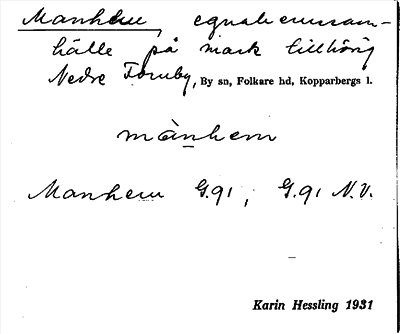 Manhem, egnahemssam-
hälle på mark tillhörig
Nedre Fornby, By sn, Folkare hd, Kopparbergs l.
mànhem
Manhem G.91, G.91 N.V.
Karin Hessling 1931